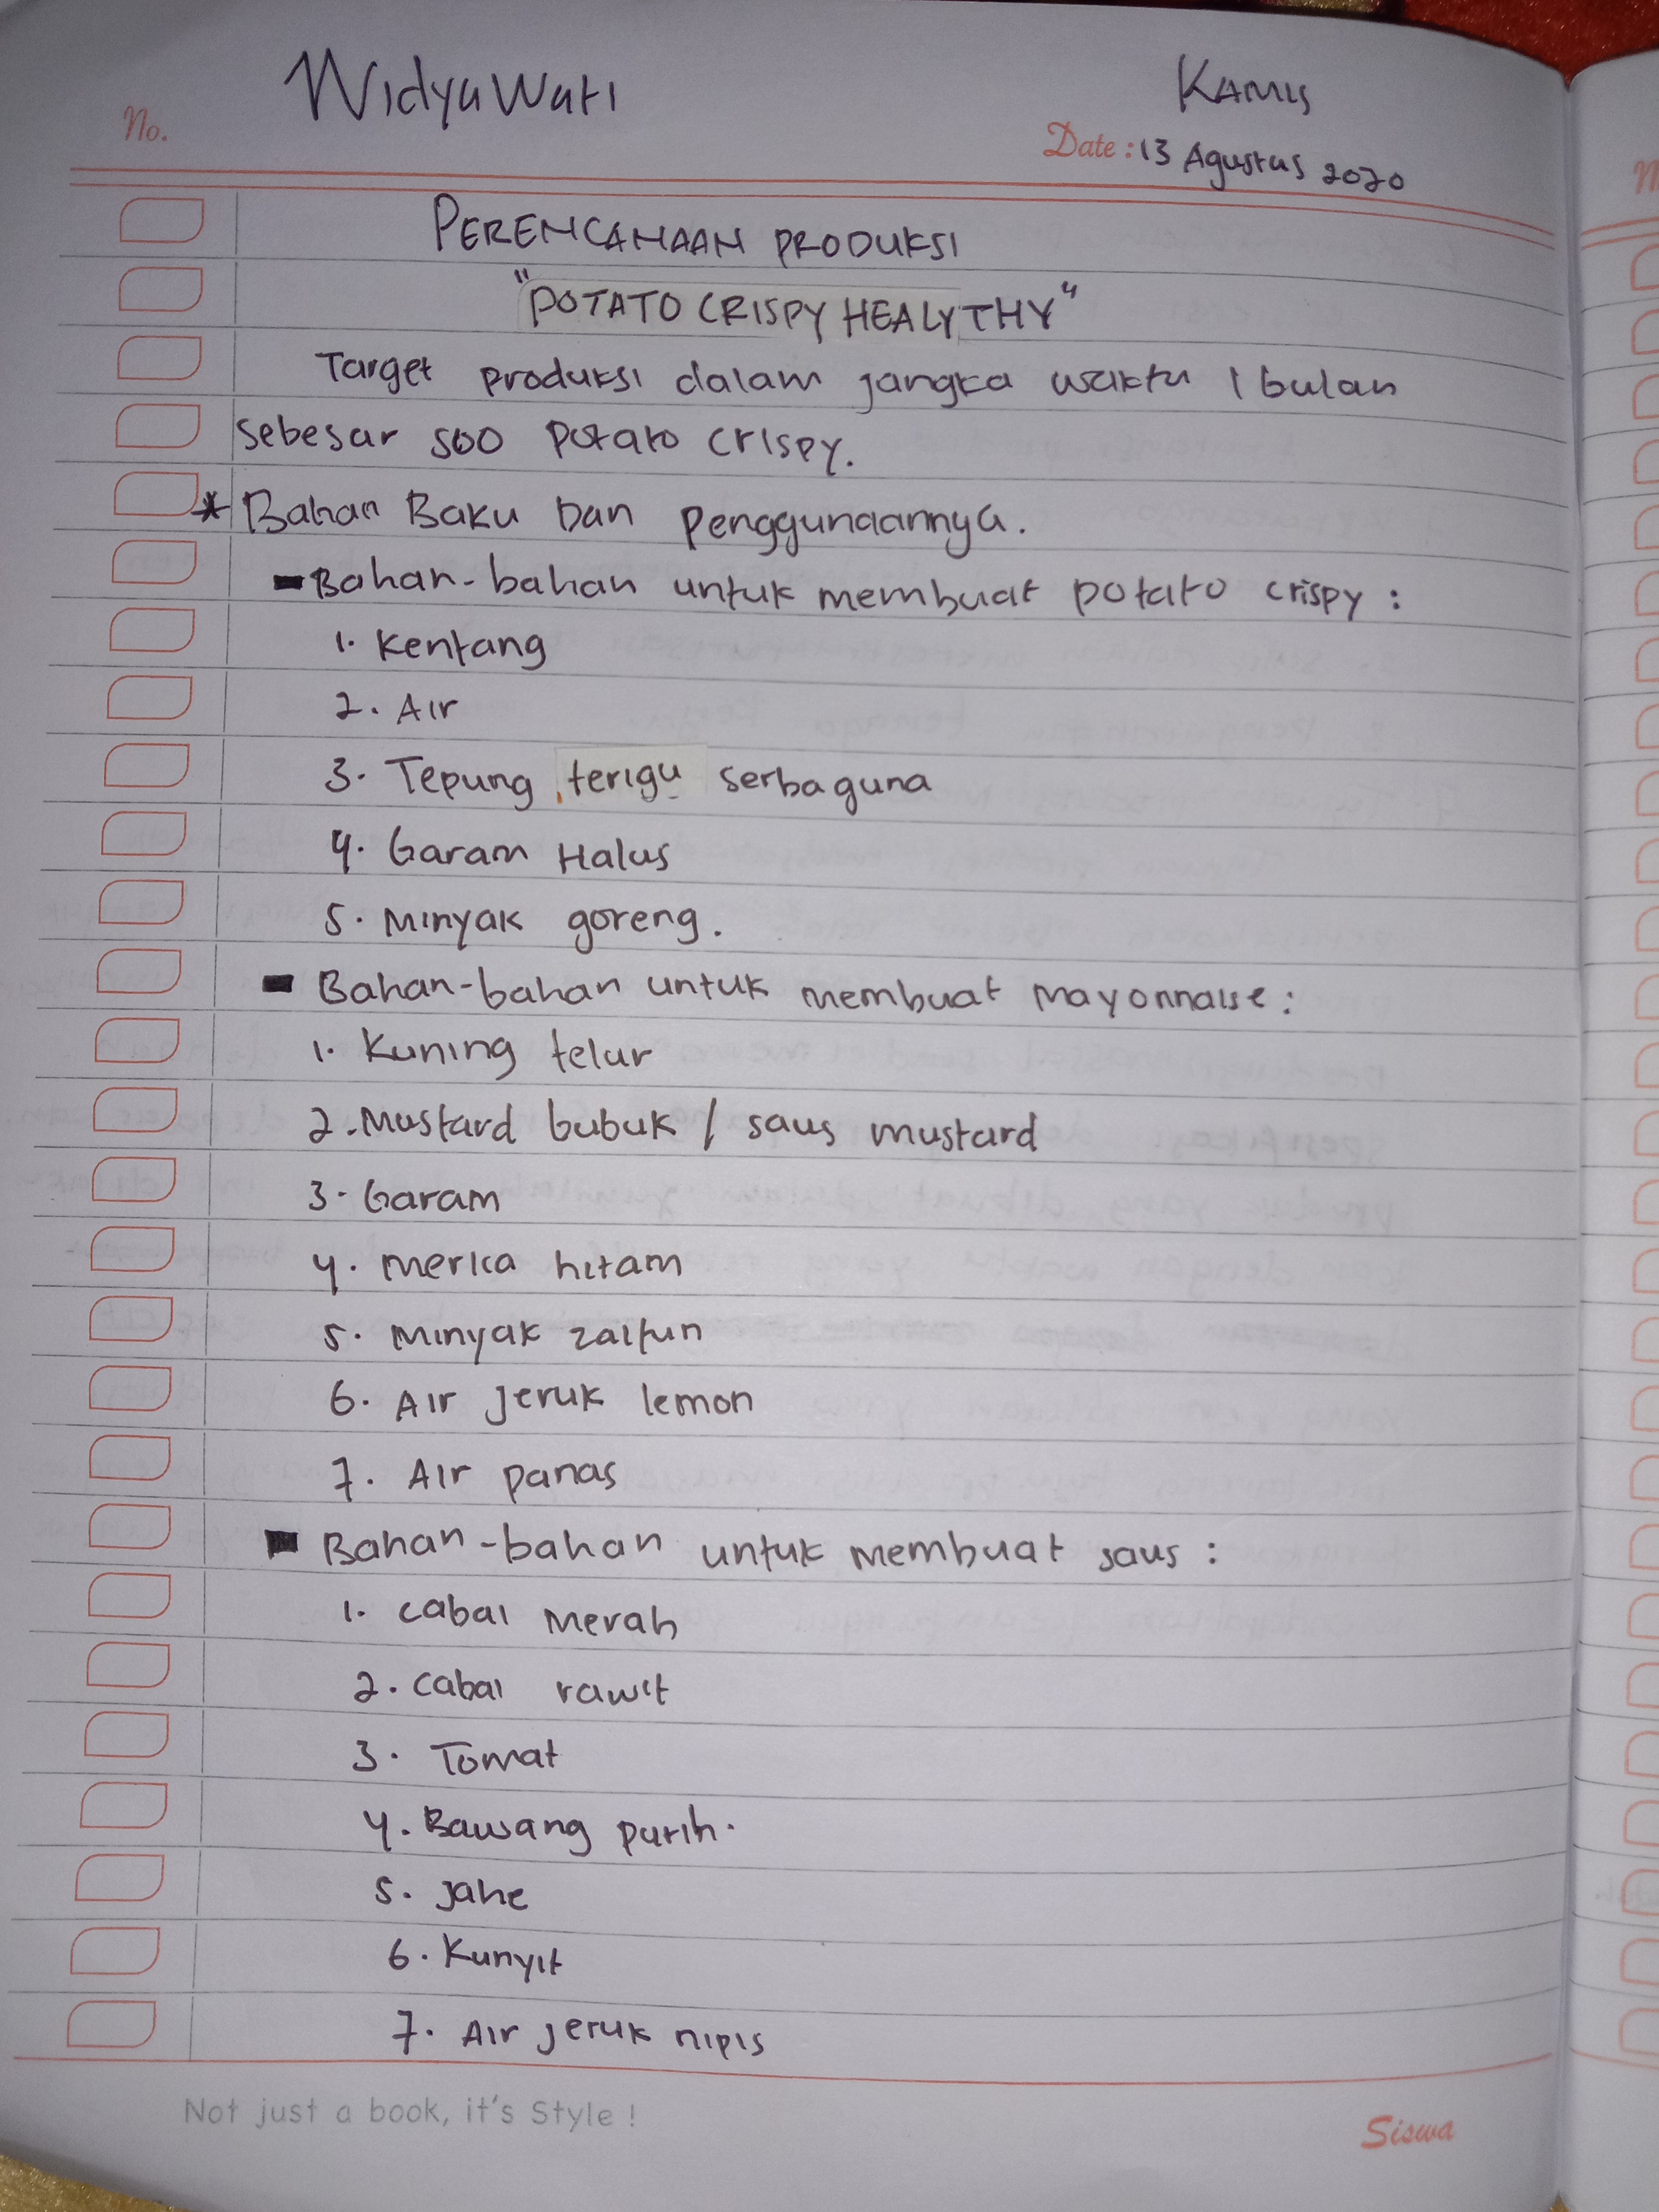 Widyawati
Kamis
No.
Date : 13 Agustus 2020
PERENCANAAN PRODUKSI
"POTATO CRISPY HEALYTHY"
Target produksi dalam jangka waktu 1 bulan
sebesar 500 potato crispy.
* Bahan Baku Dan Penggunaannya.
- Bahan-bahan untuk membuat potato crispy :
1. Kentang
2. Air
3. Tepung terigu serbaguna
4. Garam Halus
5. Minyak goreng.
- Bahan-bahan untuk membuat mayonnaise :
1. Kuning telur
2. Mustard bubuk / saus mustard
3. Garam
4. Merica hitam
5. Minyak zaitun
6. Air jeruk lemon
7. Air panas
- Bahan-bahan untuk membuat saus :
1. Cabai Merah
2. Cabai rawit
3. Tomat
4. Bawang putih.
5. Jahe
6. Kunyit
7. Air jeruk nipis
Not just a book, it's Style !
Siswa